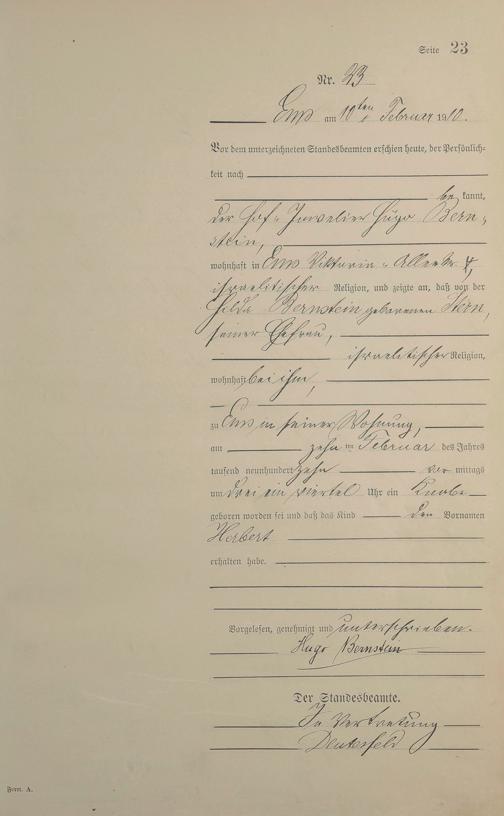 Seite 23
Nr. 23
Ems am 10ten Februar 1910.
Vor dem unterzeichneten Standesbeamten erschien heute, der Persönlich-
keit nach
be kannt,
der Hof-Juwelier Hugo Bern-
stein,
wohnhaft in Ems Viktoria-Allee Nr 4,
israelitischer Religion, und zeigte an, daß von der
Hilda Bernstein geborenen Stern,
seiner Ehefrau,
israelitischer Religion,
wohnhaft bei ihm,
zu Ems in seiner Wohnung,
am zehn ten Februar des Jahres
tausend neunhundert zehn vor mittags
um drei ein viertel Uhr ein Knabe
geboren worden sei und daß das Kind den Vornamen
Herbert
erhalten habe.
Vorgelesen, genehmigt und unterschrieben.
Hugo Bernstein
Der Standesbeamte.
In Vertretung
Form. A.